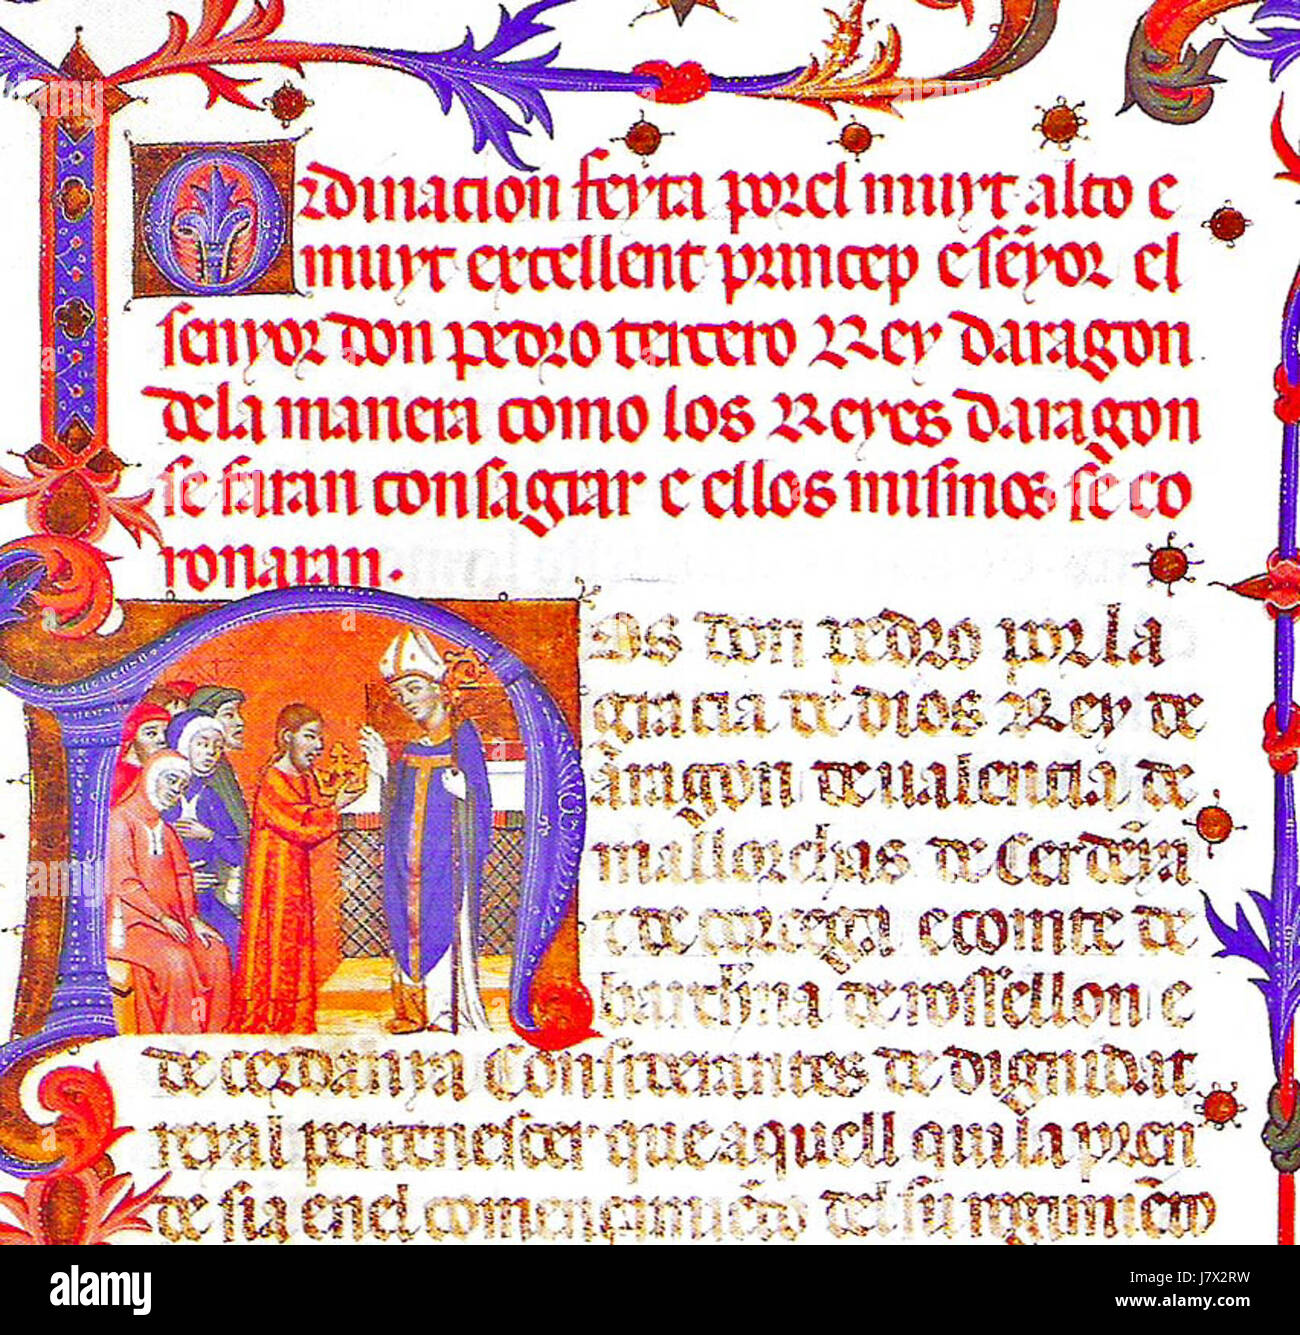 Ordinacion feyta por el muyt alto e
muyt excellent princep e sẽyor el
senyor don pedro tercero Rey daragon
dela manera como los Reyes daragon
se faran consagrar e ellos misinos se co
ronaran.
Nos don pedro por la
gracia de dios Rey de
aragon de ualencia de
mallorchas de Cerdeỹa
e de corcega e comte de
barchỉna de rossellon e
de cerdanya Considerantes de dignidat
reyal pertenescer que aquell qui la pren
de sia en el començamiẽto del su regimiẽto
alamy
Image ID: J7X2RW
www.alamy.com